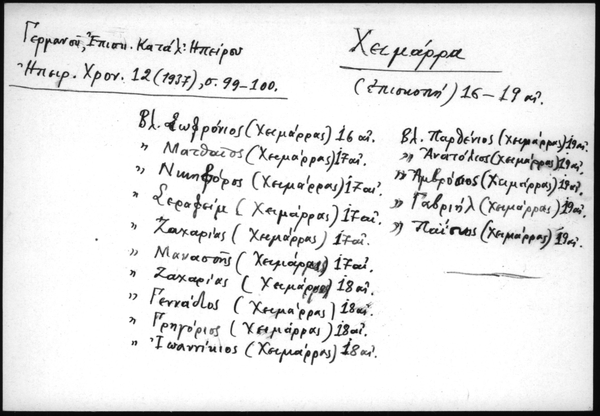 Γερμανοῦ, Ἐπισκ. Κατάλ. Ἠπείρου
Ἠπειρ. Χρον. 12 (1937), σ. 99-100.
Χειμάρρα
(ἐπισκοπή) 16-19 αἰ.
Βλ. Σωφρόνιος (Χειμάρρας) 16 αἰ.
" Ματθαῖος (Χειμάρρας) 17 αἰ.
" Νικηφόρος (Χειμάρρας) 17 αἰ.
" Σεραφείμ (Χειμάρρας) 17 αἰ.
" Ζαχαρίας (Χειμάρρας) 17 αἰ.
" Μανασσῆς (Χειμάρρας) 17 αἰ.
" Ζαχαρίας (Χειμάρρας) 18 αἰ.
" Γεννάδιος (Χειμάρρας) 18 αἰ.
" Γρηγόριος (Χειμάρρας) 18 αἰ.
" Ἰωαννίκιος (Χειμάρρας) 18 αἰ.
Βλ. Παρθένιος (Χειμάρρας) 19 αἰ.
" Ἀνατόλιος (Χειμάρρας) 19 αἰ.
" Ἀμβρόσιος (Χειμάρρας) 19 αἰ.
" Γαβριήλ (Χειμάρρας) 19 αἰ.
" Παΐσιος (Χειμάρρας) 19 αἰ.